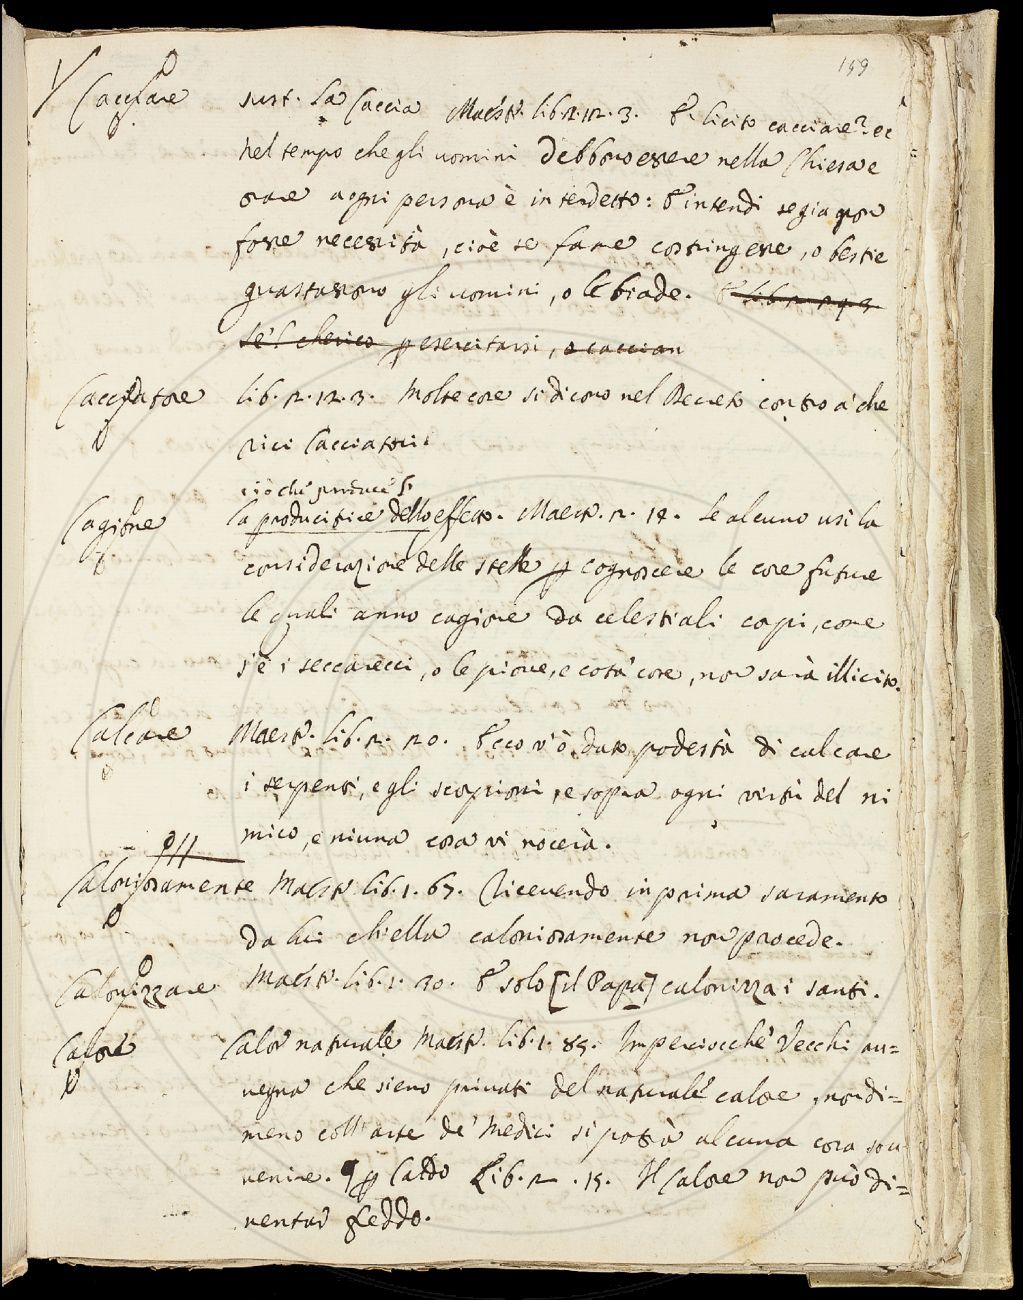 159
Cacciare sust. La Caccia Maestr. lib. 2. 12. 3. E licito cacciare? ec
nel tempo che gli uomini debbono essere nella Chiesa e
orare a ogni persona è interdetto: E intendi se gia non
fosse necessità, cioè se fame costringesse, o bestie
guastassono gli uomini, o le biade. E lib. 2. 24. 3.
se 'l cherico p esercitarsi, o cacciar
Cacciatore lib. 2. 12. 3. Molte cose si dicono nel Decreto contro a' che
rici Cacciatori.
ciò che produce
Cagione la producitrice dello effetto. Maestr. 2. 14. Se alcuno usi la
considerazione delle stelle p cognoscere le cose future
le quali anno cagione da celestiali corpi, come
s'è i seccarecci, o le piove, e cota' cose, non sarà illicito.
Calcare Maestr. lib. 2. 20. Ecco v'ò dato podestà di calcare
i serpenti, e gli scorpioni, e sopra ogni virtù del ni
mico, e niuna cosa vi nocerà.
Caloniosamente Maestr. lib. 1. 67. Ricevendo in prima saramento
da lui ch'ella caloniosamente non procede.
Calonizzare Maestr. lib. 1. 30. E solo [il Papa] calonizza i santi.
Calore Calor naturale Maestr. lib. 1. 85. Imperciocchè Vecchi av=
vegna che sieno privati del naturale calore, nondi=
meno coll'arte de' Medici si potrà alcuna cosa sov
venire. p Caldo Lib. 2. 15. Il Calore non può di=
ventar freddo.